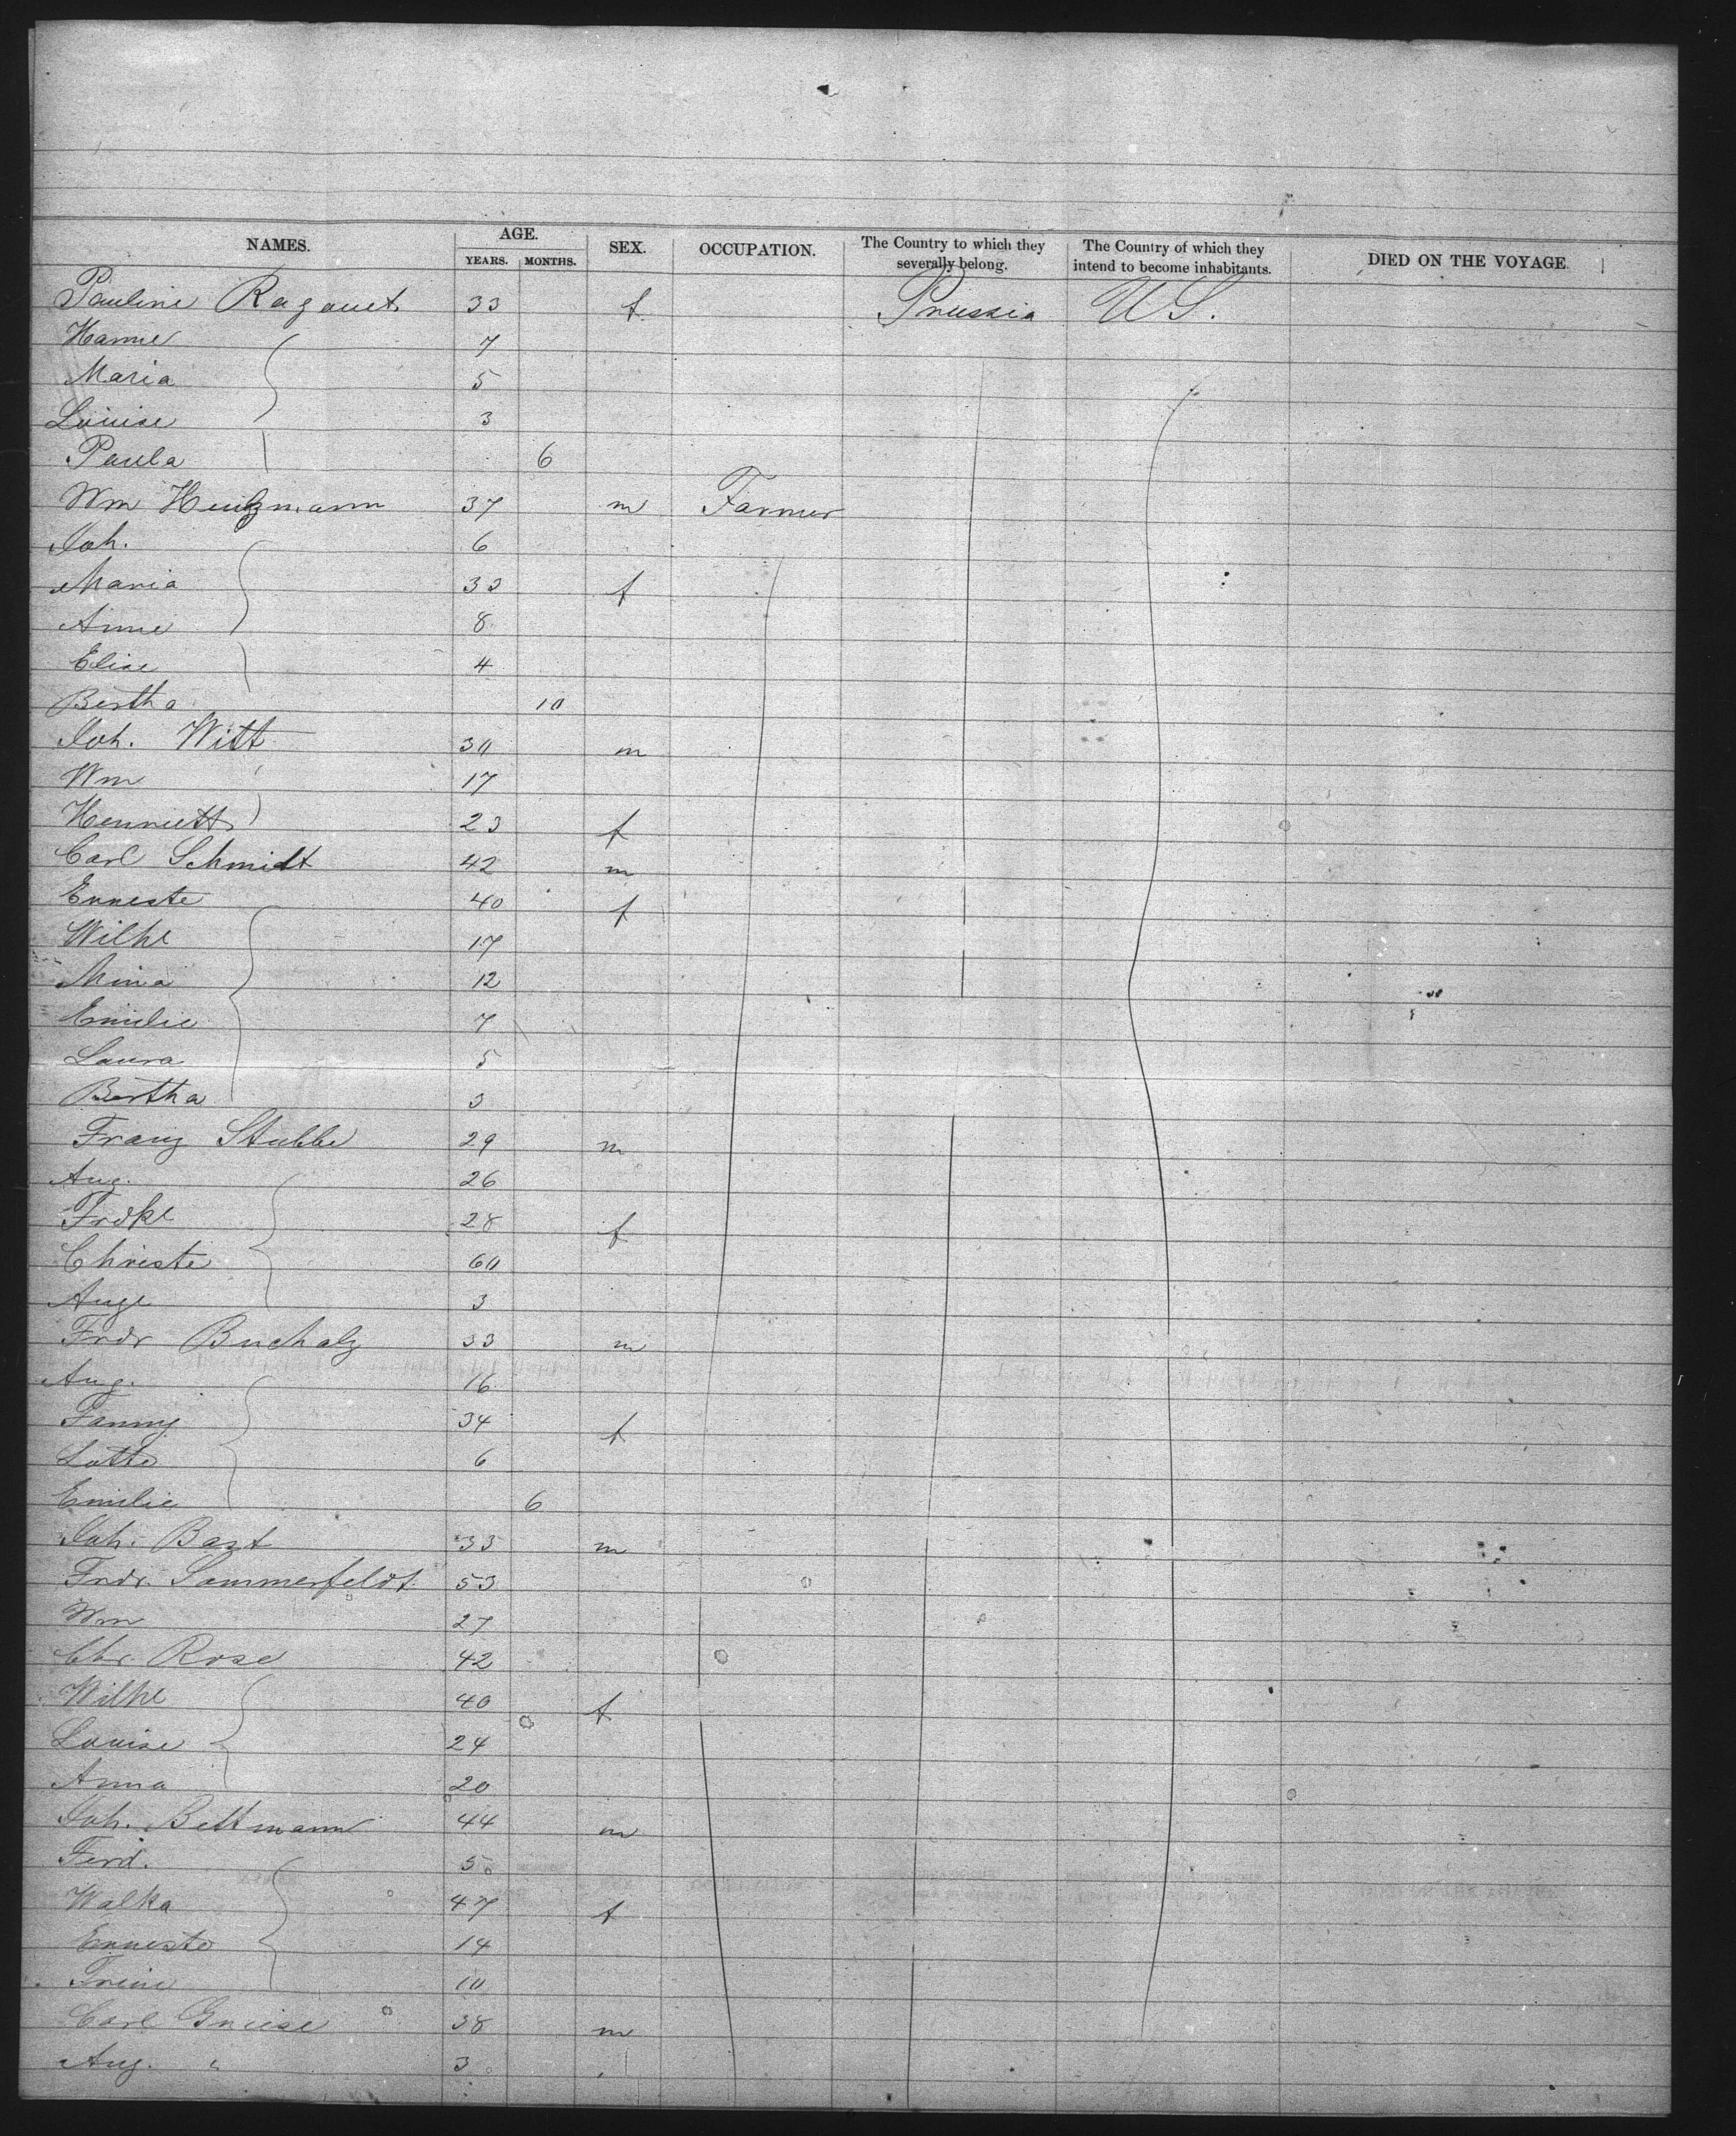 NAMES. AGE. YEARS. MONTHS. SEX. OCCUPATION. The Country to which they severally belong. The Country of which they intend to become inhabitants. DIED ON THE VOYAGE.
Pauline Ragouet 33 f Prussia U S.
Hanne 7
Maria 5
Louise 3
Paula 6
Wm 37 m Farmer
Joh. 6
Maria 33 f
Anne 8
Elise 4
Bertha 10
Joh. Witt 30 m
Wm 17
Henriett 23 f
Carl Schmidt 42 m
Erneste 40 f
Wilhe 17
Mina 12
Emilie 7
Laura 5
Bertha 3
Franz Stubbe 29 m
Aug. 26
Frdke 28 f
Christe 60
Auge 3
Frdr Bucholz 33 m
Aug. 16
Fanny 34 f
Lotte 6
Emilie 6
Joh. Bast 33 m
Frdr. Sommerfeldt 53
Wm 27
Chr. Rose 42
Wilhe 40 f
Louise 24
Anna 20
Joh. Bettmann 44 m
Ferd. 5
Walka 47 f
Erneste 14
Trine 10
Carl 38 m
Aug. " 3